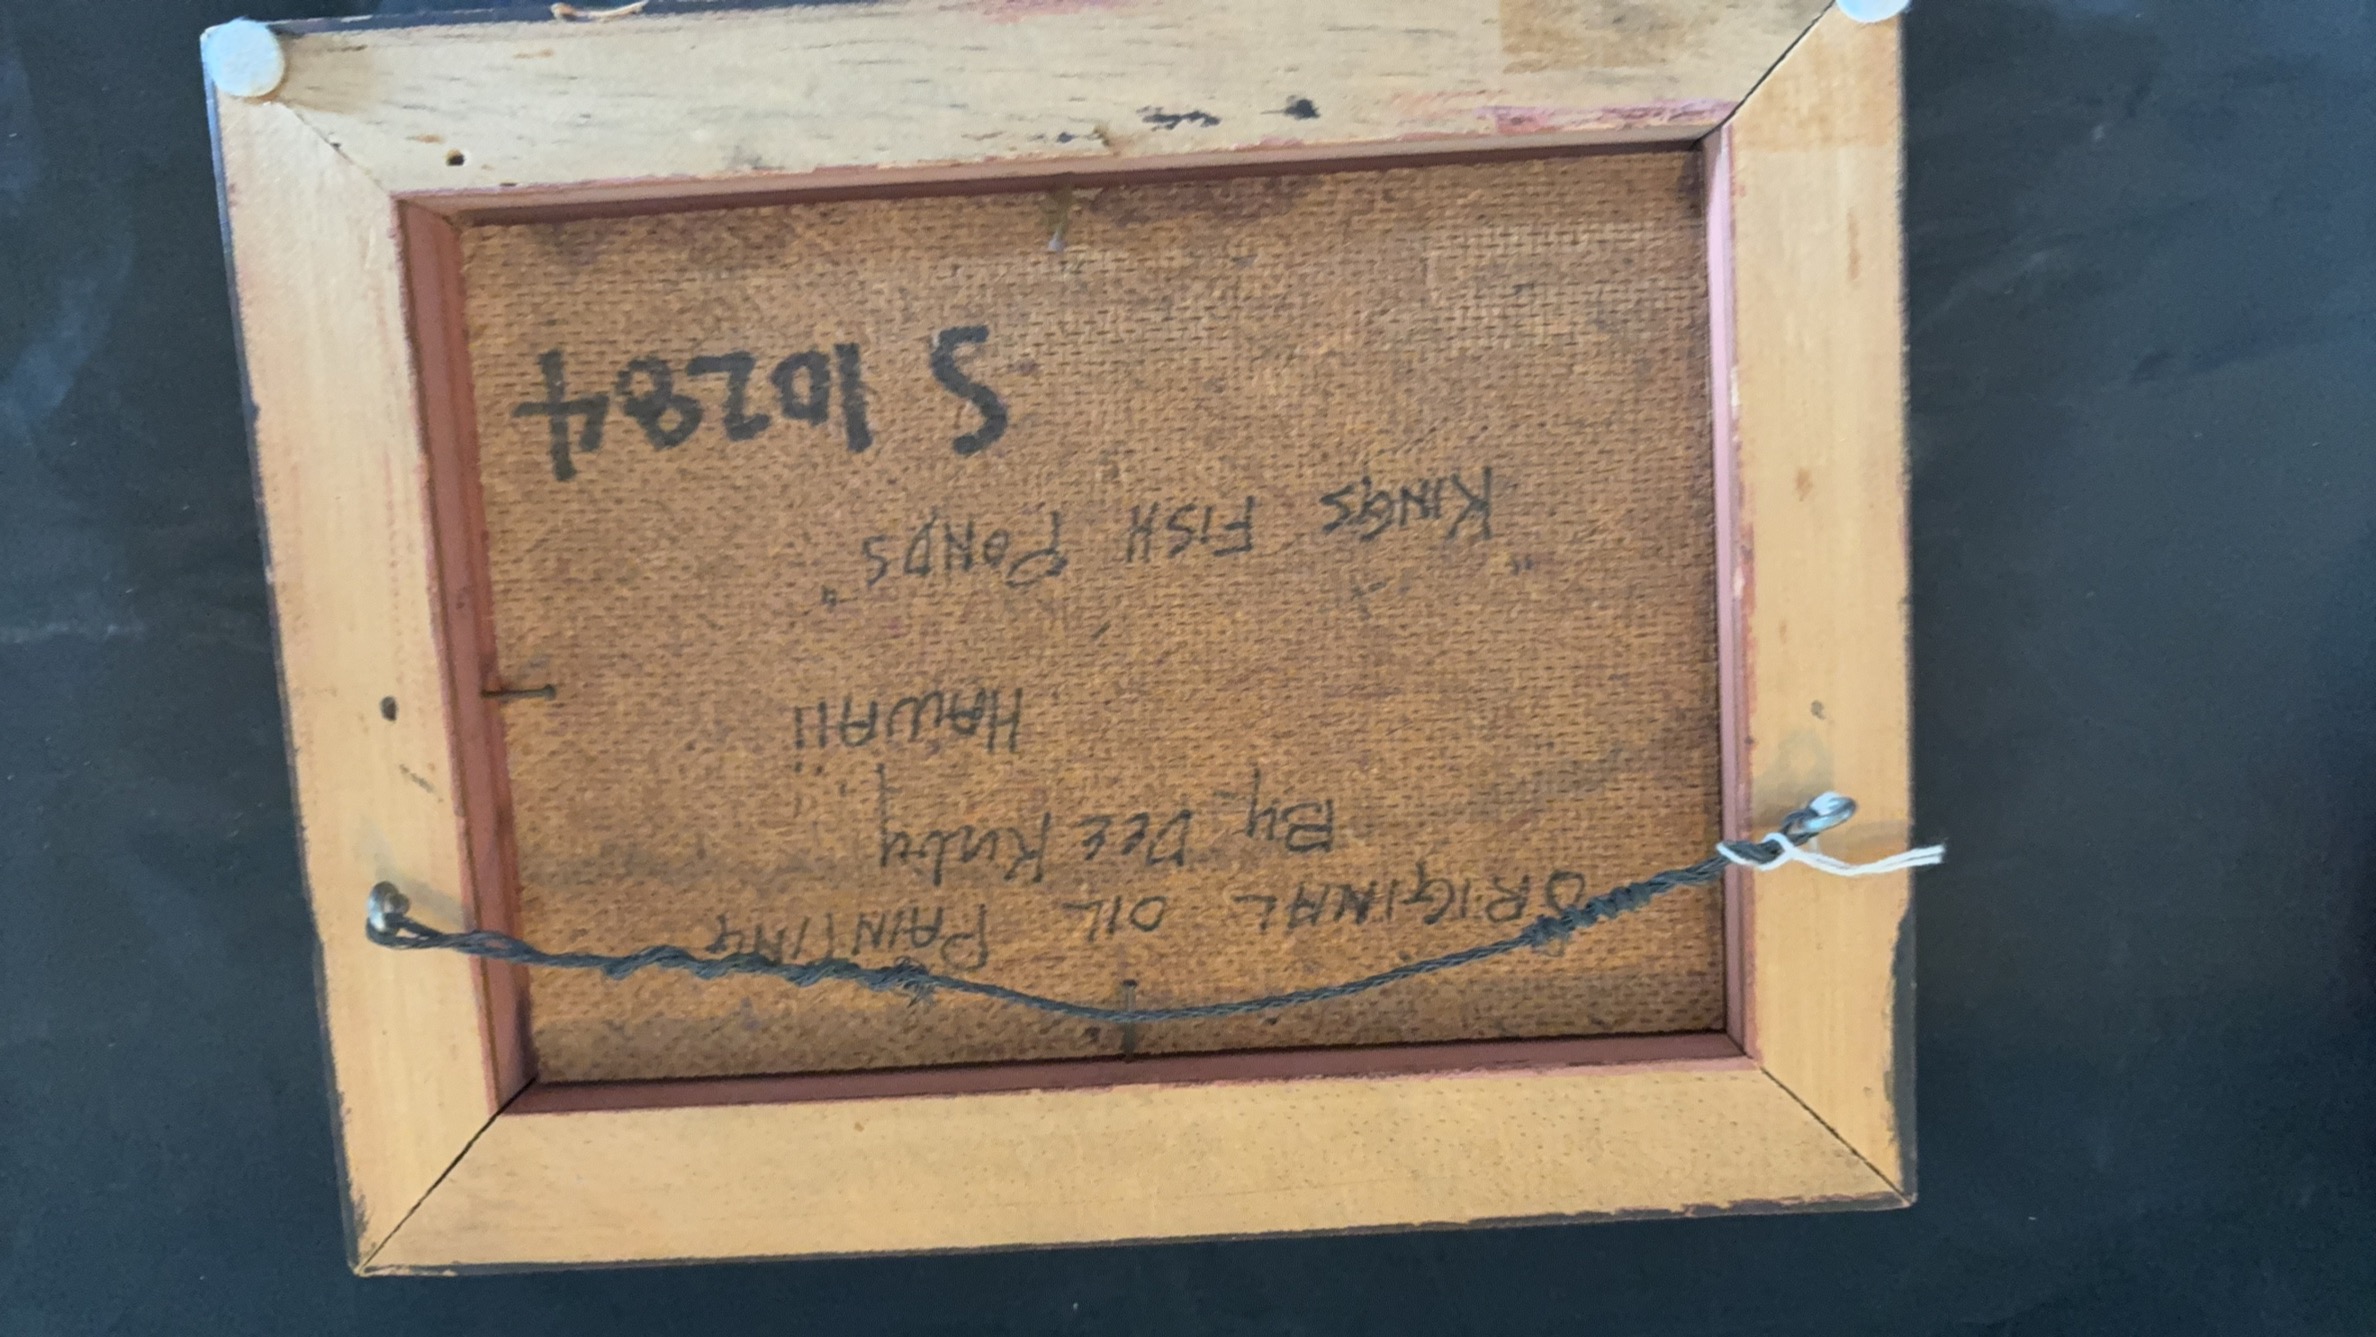 ORIGINAL OIL PAINTING
By Dee Kirby
HAWAii
"KINGS FISH PONDS"
S 10284